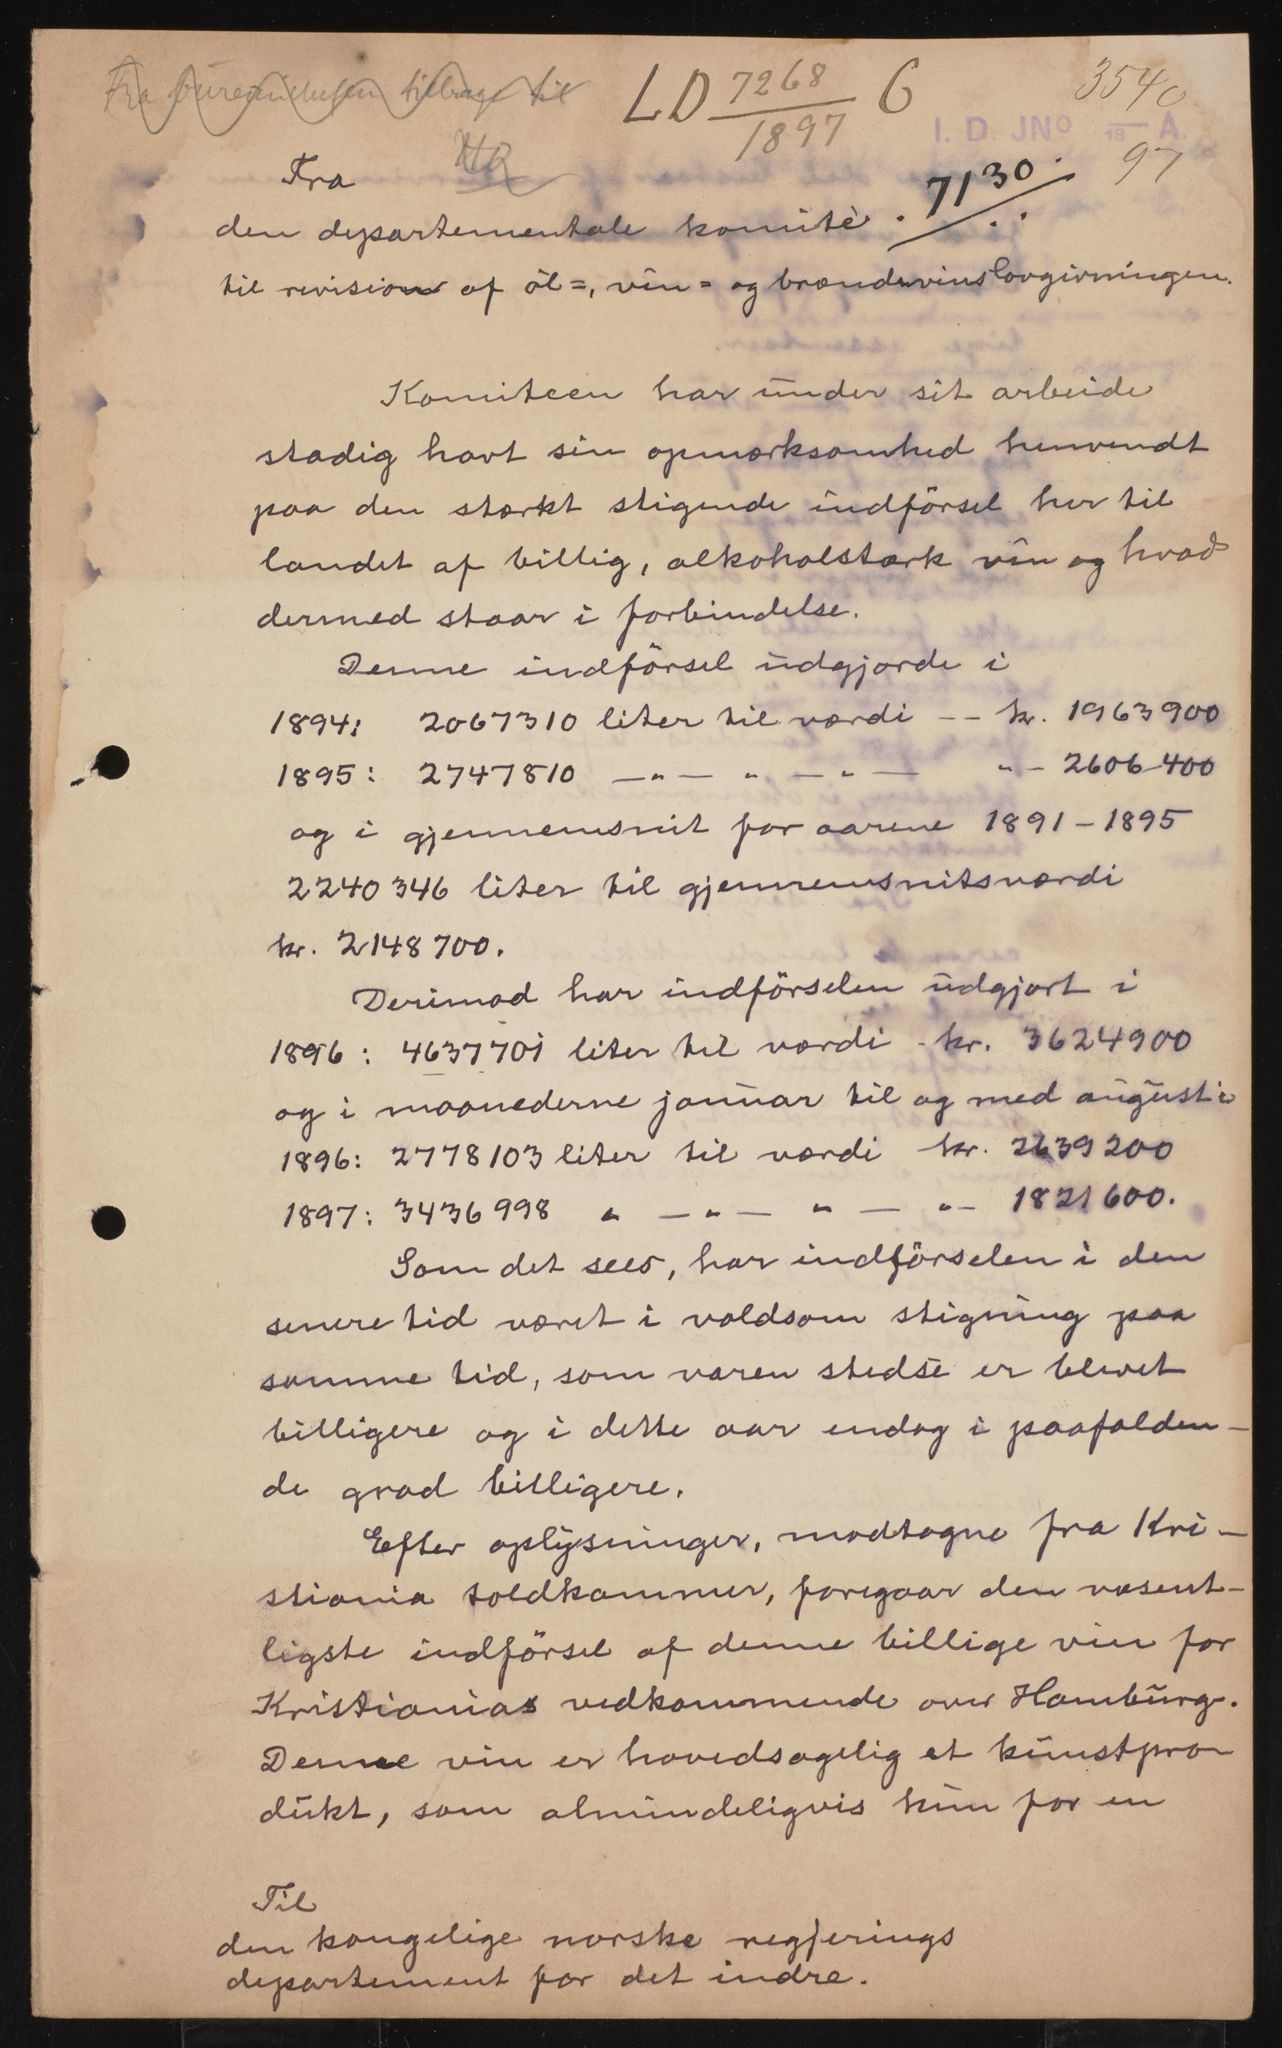 LD 7268/1897 C
3540
I. D. JNo 18 A.
97
7130
Fra
den departementale komité
til revision af öl=, vin= og brændevinslovgivningen.
Komiteen har under sit arbeide
stadig havt sin opmærksomhed henvendt
paa den stærkt stigende indförsel her til
landet af billig, alkoholstærk vin og hvad
dermed staar i forbindelse.
Denne indförsel udgjorde i
1894: 2067310 liter til værdi -- kr. 1963900
1895: 2747810 —„— „ —„— „- 2606400
og i gjennemsnit for aarene 1891-1895
2240346 liter til gjennemsnitsværdi
kr. 2148700.
Derimod har indförselen udgjort i
1896: 4637701 liter til værdi - kr. 3624900
og i maanederne januar til og med august i
1896: 2778103 liter til værdi kr. 2639200
1897: 3436998 „ —„— „ — „- 1821600.
Som det sees, har indförselen i den
senere tid været i voldsom stigning paa
samme tid, som varen stedse er blevet
billigere og i dette aar endog i paafalden-
de grad billigere.
Efter oplysninger, modtagne fra Kri-
stiania toldkammer, foregaar den væsent-
ligste indförsel af denne billige vin for
Kristianias vedkommende over Hamburg.
Denne vin er hovedsagelig et kunstpro-
dukt, som almindeligvis kun for en
Til
den kongelige norske regjerings
departement for det indre.